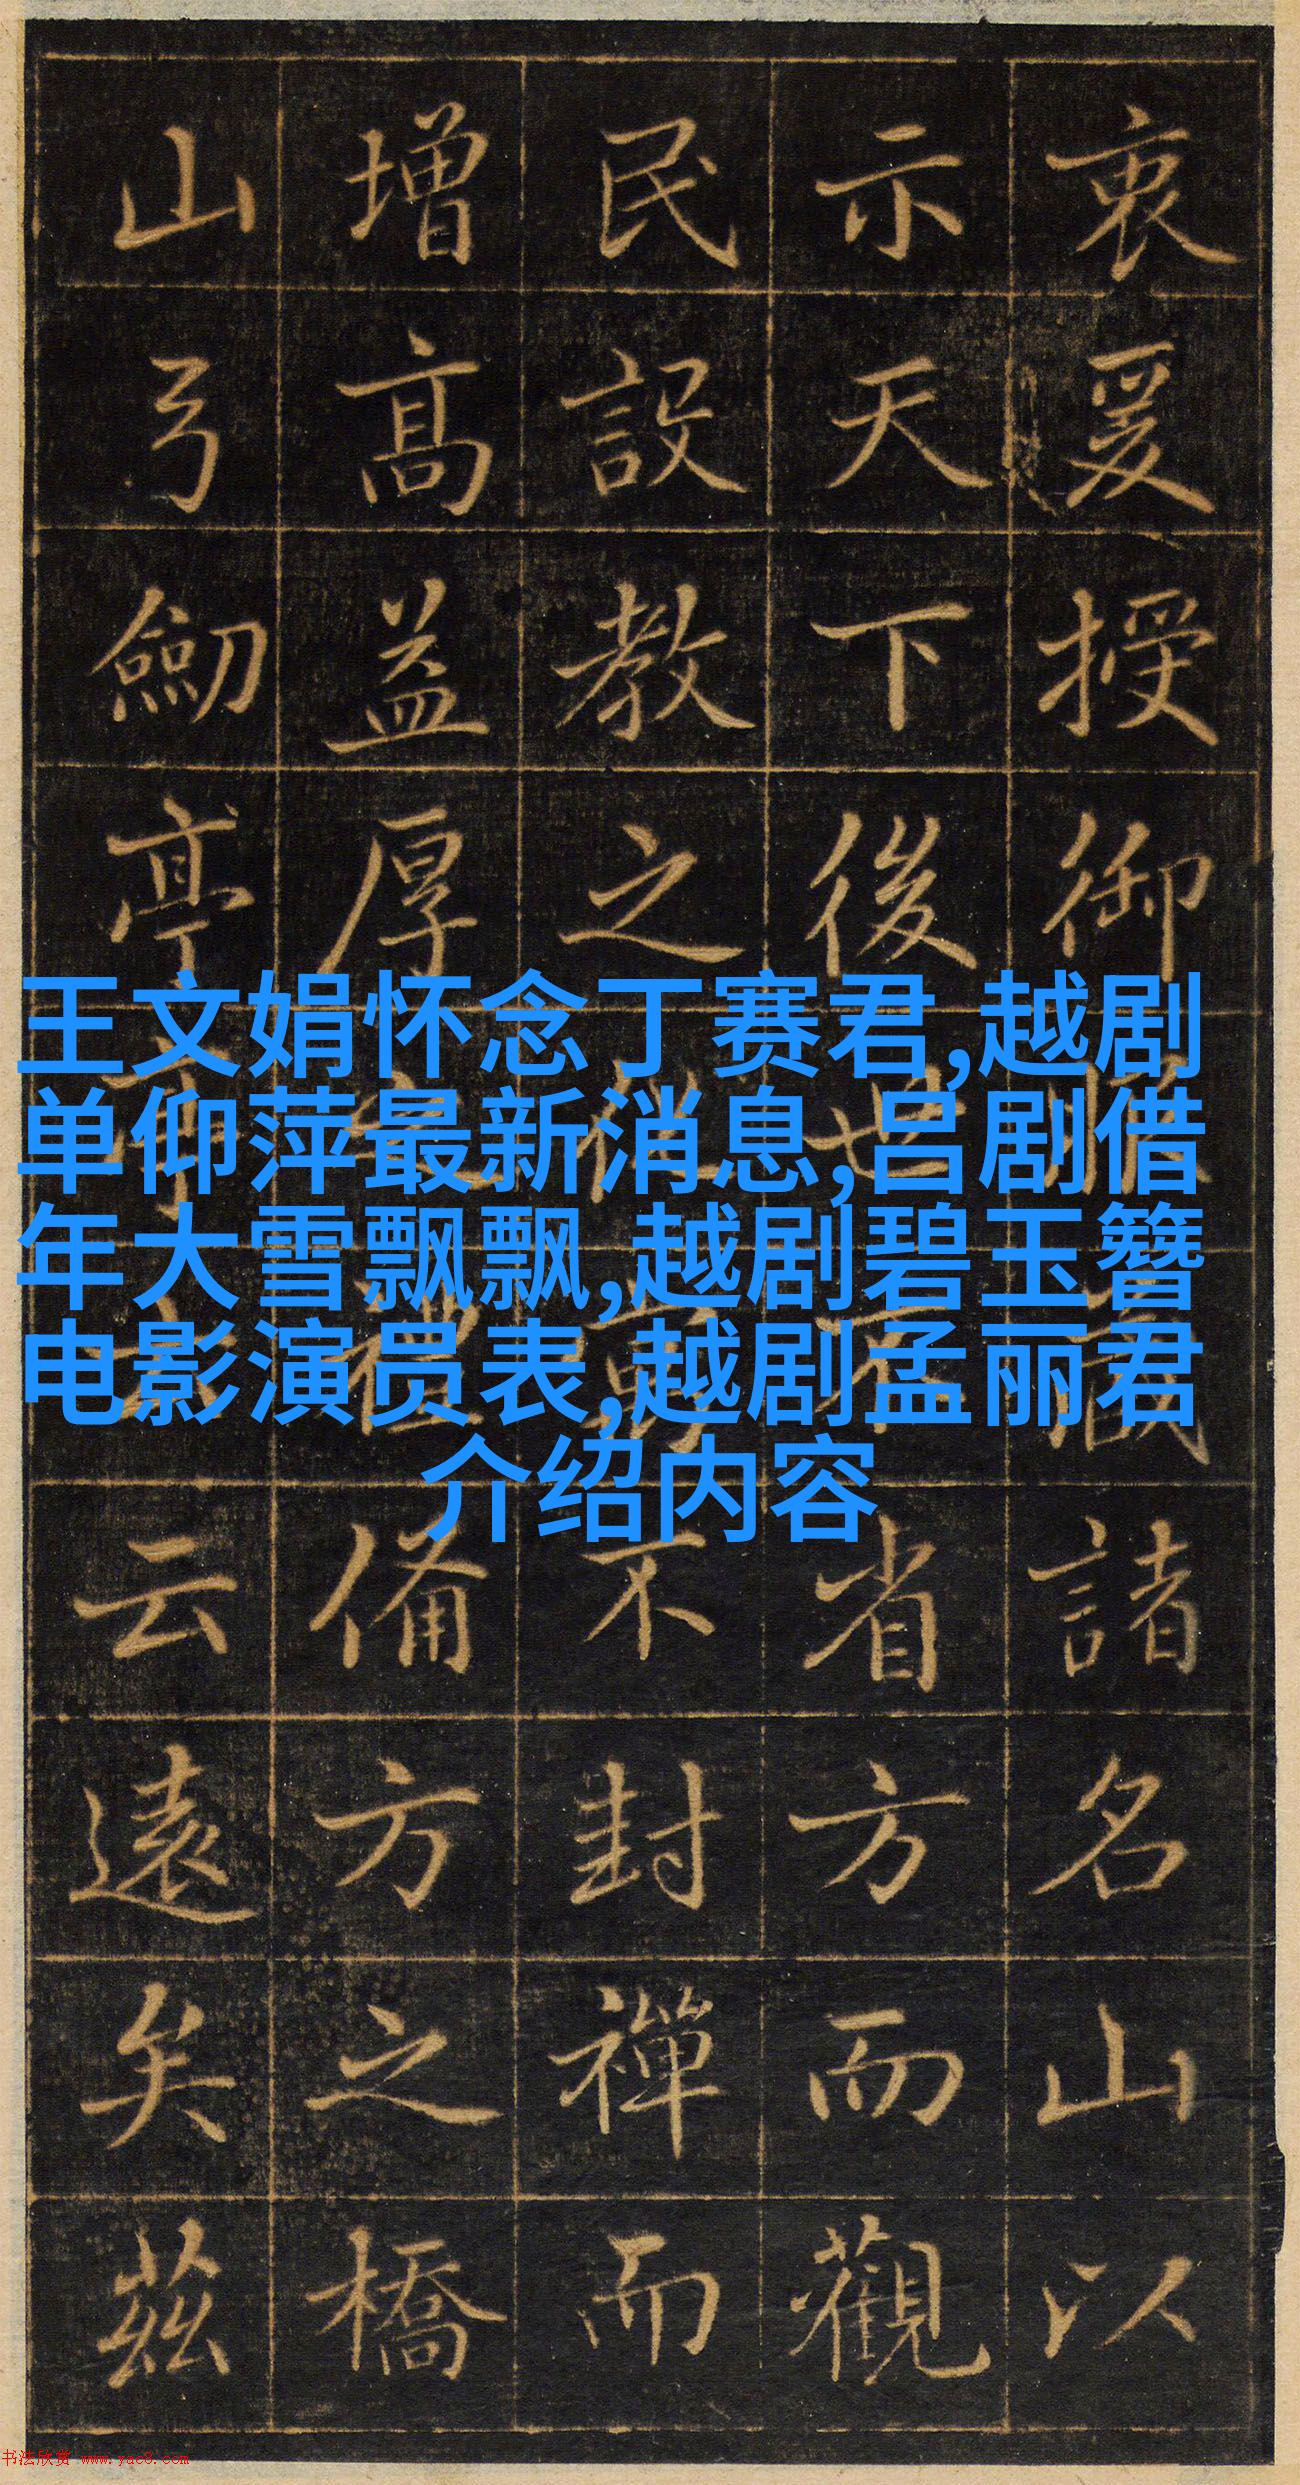 衷爰授御諸名山以
示天下後世省方而觀
民設教之不封禪而
增高益厚禮備方之橋
山弓劒亭亭云云遠矣茲
王文娟怀念丁赛君,越剧
单仰萍最新消息,吕剧借
年大雪飘飘,越剧碧玉簪
电影演员表,越剧孟丽君
介绍内容
书法欣赏 www.yac8.com